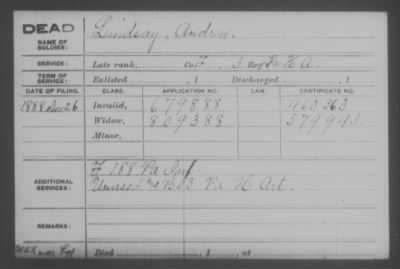 DEAD
NAME OF SOLDIER: Lindsay, Andrew.
SERVICE: Late rank, Co. F. 3 Reg't Pa H A.
TERM OF SERVICE: Enlisted , 1 Discharged , 1
DATE OF FILING. CLASS. APPLICATION NO. LAW. CERTIFICATE NO.
1888 26 Invalid, 679888 460363
Widow, 809388 579943
Minor,
ADDITIONAL SERVICES: F 188 Pa Inf.
Unass'd B 3 Pa H Art.
REMARKS:
Died , 1 , at